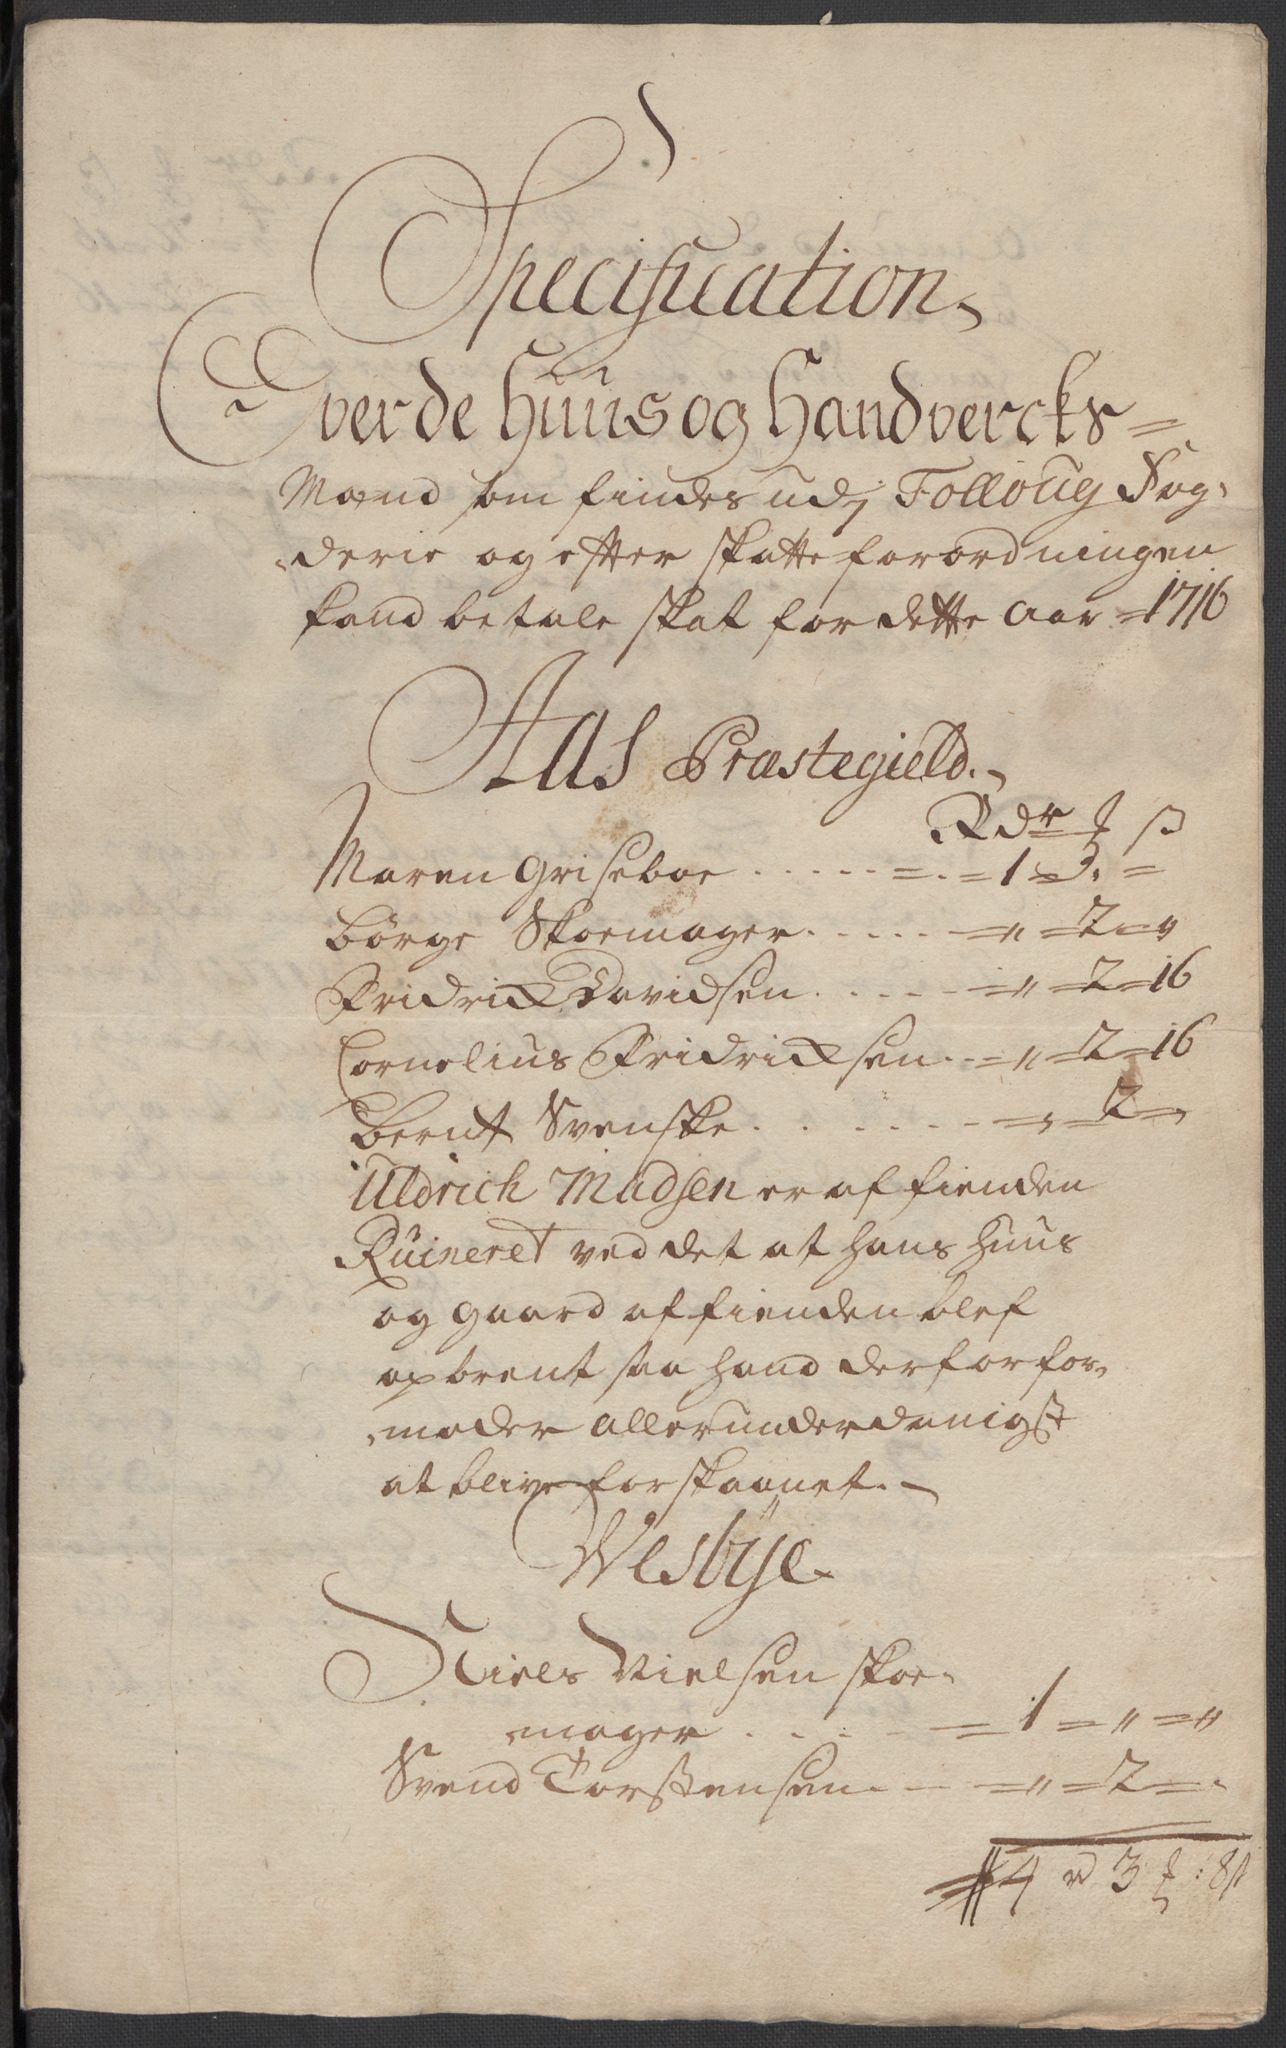 Specification
Over de Huus og Handvercks=
Mænd som findes udj Folloug Fog-
derie og efter Skatte forordningen
kand betale skat for dette Aar 1716
Aas Præstegield.
Rdr ß
Maren Griseboe ..... = . = 1 = 3. =
Børge Skoemager ..... = " = 2 = "
Fridrick Davidsen ..... = " = 2 = 16
Cornelius Fridricksen .. = " = 2 = 16
Bernt Svenske ..... = , = 2 = ,
Uldrich Madsen er af fienden
Ruineret ved det at hans Huus
og gaard af fienden blef
opbrent saa hand derfor for-
moder allerunderdanigst
at blive forskaanet.
Wesbye
Niels Nielsen skoe-
mager .... = 1 = " = "
Svend Torstensen. — = " = 2 = .
4 rd 3 : 8 ß